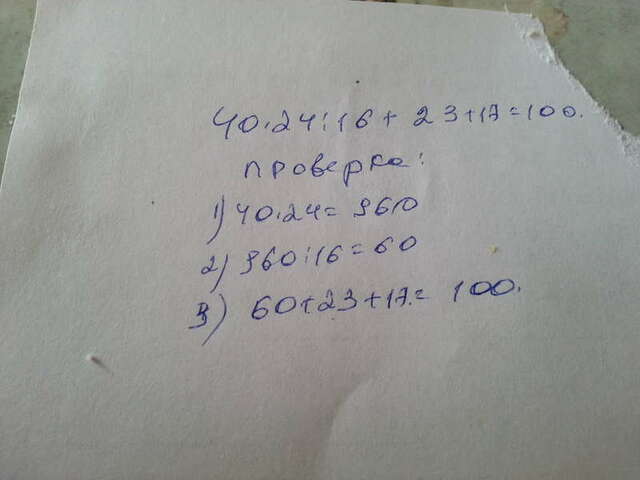 40·24:16+23+17=100.
проверка:
1) 40·24=960
2) 960:16=60
3) 60+23+17=100.